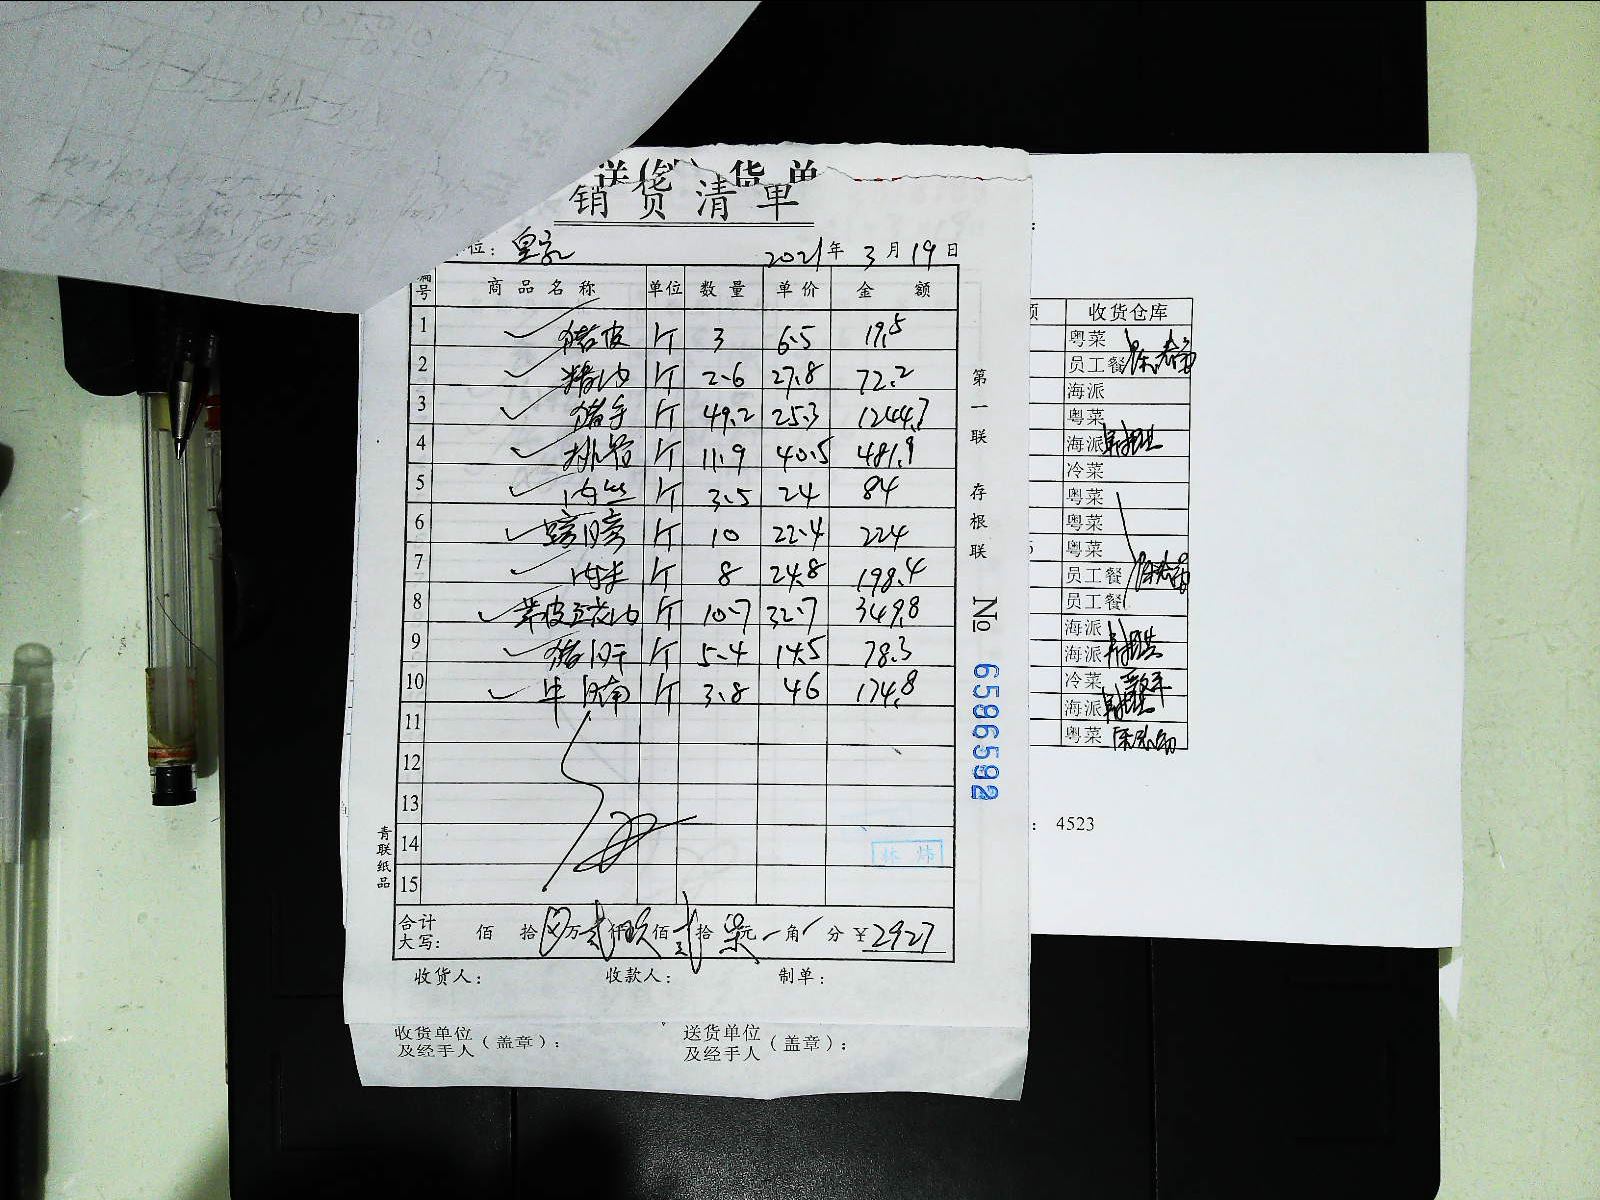 送(
货单
销货清单
位：皇家
2021年3月19日
编号 商品名称 单位 数量 单价 金额
1 猪皮 斤 3 6.5 19.5
2 精肉 斤 2.6 27.8 72.2
3 猪手 斤 49.2 25.3 1244.7
4 排骨 斤 11.9 40.5 481.9
5 肉丝 斤 3.5 24 84
6 斤 10 22.4 224
7 肉末 斤 8 24.8 198.4
8 带皮五花肉 斤 10.7 32.7 349.8
9 猪肝 斤 5.4 14.5 78.3
10 牛腩 斤 3.8 46 174.8
11
12
13
14
15
林炜
合计大写： 佰 拾 万贰仟玖佰贰拾柒元 角 分 ¥2927
收货人： 收款人： 制单：
第一联 存根联
№ 6596592
青联纸品
收货单位及经手人（盖章）： 送货单位及经手人（盖章）：
收货仓库
粤菜
员工餐
海派
粤菜
海派
冷菜
粤菜
粤菜
粤菜
员工餐
员工餐
海派
海派
冷菜
海派
粤菜
：4523